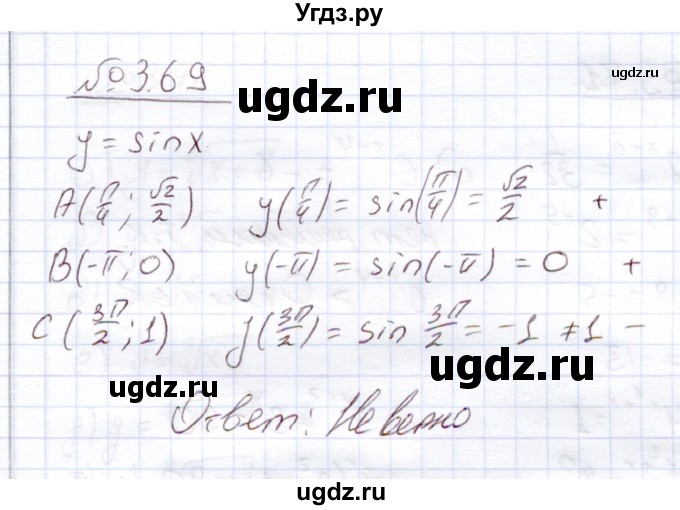 Угдз.ру
№3.69
ugdz.ru
ugdz.ru
y = sin x
A(π/4; √2/2) y(π/4) = sin(π/4) = √2/2 +
B(-π; 0) y(-π) = sin(-π) = 0 +
C(3π/2; 1) y(3π/2) = sin 3π/2 = -1 ≠ 1 -
ugdz.ru
ugdz.ru
Ответ: Неверно
ugdz.ru